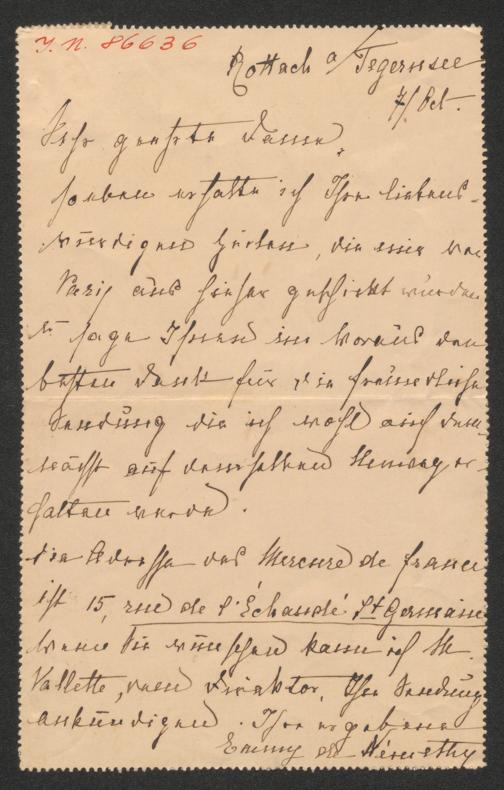 J. N. 86636
Rottach a/Tegernsee
7/ Oct.
Sehr geehrte Dame,
soeben erhalte ich Ihre liebens-
würdigen Zeilen, die mir von
Paris aus hieher geschickt wurden
u. sage Ihnen im Voraus den
besten Dank für die freundliche
Sendung die ich wohl auch dem-
nächst auf demselben Umweg er-
halten werde.
die Adresse des Mercure de france
ist 15, rue de l'Échaudé St Germain
wenn Sie wünschen kann ich M.
Vallette, dem Direktor, Ihre Sendung
ankündigen. Ihre ergebene
Emmy de Némethy